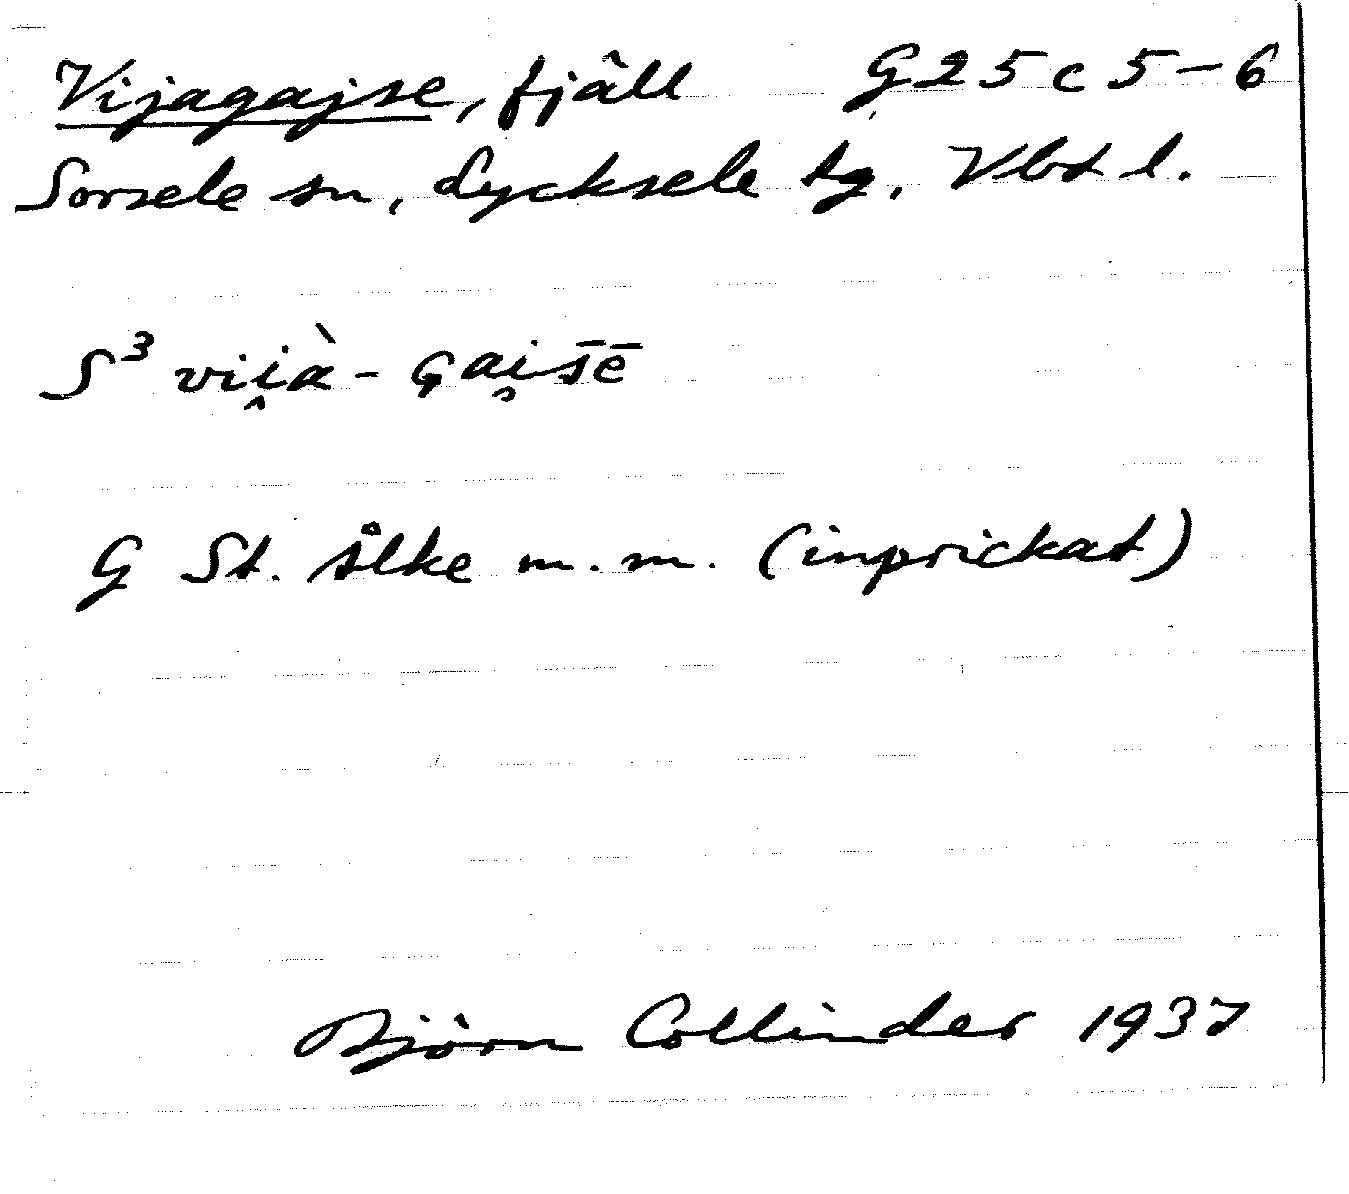 Vijagajse, fjäll G 25 c 5-6
Sorsele sn, Lycksele tg. Vbt l.
S³ vii̭à - Gai̯s̄ē
G St. Ålke m.m. (inprickat)
Björn Collinder 1937